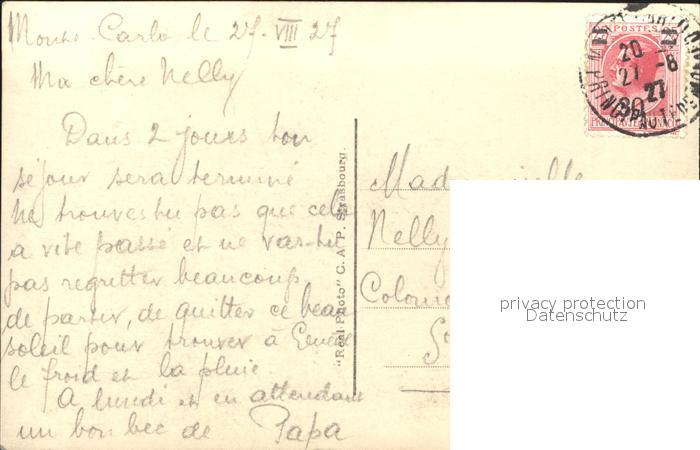 Monte-Carlo le 27-VIII 27
Ma chère Nelly
Dans 2 jours ton
séjour sera terminé
Ne trouves tu pas que cela
a vite passé et ne vas-tu
pas regretter beaucoup
de partir, de quitter ce beau
soleil pour trouver à Genève
le froid et la pluie.
A lundi et en attendant
un bon bec de Papa
"Réal-Photo" C. A. P. Strasbourg.
POSTES
20
27 -8
27
Mademoiselle
Nelly
privacy protection
Datenschutz